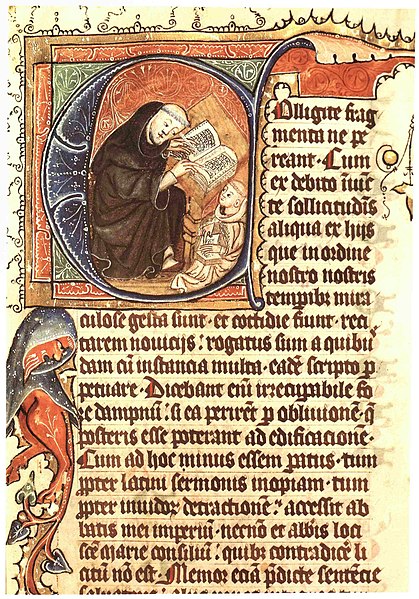 COlligite frag
menta ne pe
reant · Cum
ex debito iniūc
te sollicitudīs
aliqua ex hijs
que in ordine
nostro nostris
temporibꝫ mira
culose gesta sunt · et cottidie fiunt · reci
tarem novicijs : rogatus sum a quibus
dam cū instantia multa · eadē scripto p̄
petuare · Dicebant enī irrecuꝑabile fo
re dampnū : si ea perirēt ꝑ oblivionē · q̄
posteris esse poterant ad edificationē ·
Cum ad hoc minus essem paratus · tum
ꝓpter latini sermonis inopiam · tum
ꝓpter invidoꝝ detractionē : accessit ab
batis mei imperiū · necnō et abbīs loci
scē Marie consiliū : quibꝫ contradicē li
citū nō est · Memor eciā p̄dicte sentēcie